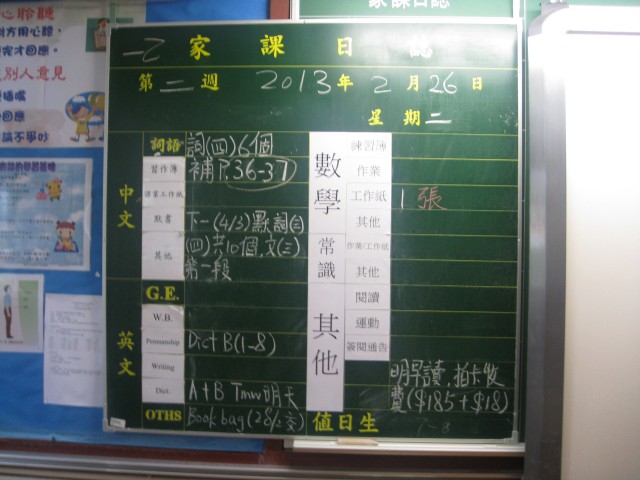 家課日誌
心聆聽
對方用心聽,
完才回應。
別人意見
一乙 家課日誌
第二週 2013年2月26日
星期二
中文
詞語 詞(四)6個
習作簿 補P.36-37
課業工作紙
默書 下一(4/3)默詞(三)
其他 (四)共10個,文(三)
第一段
英文
G.E.
W.B.
Penmanship Dict B(1-8)
Writing
Dict. A+B Tmw 明天
OTHS Book bag (28/2交)
數學
練習簿
作業
工作紙 1張
其他
常識
作業/工作紙
其他
其他
閱讀
運動
簽閱通告
明早讀,拍卡收
費($185+$18)
值日生